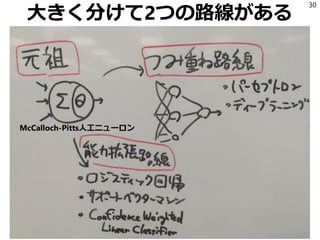 大きく分けて2つの路線がある
30
元祖
つみ重ね路線
Σ θ
・パーセプトロン
・ディープラーニング
McCalloch-Pitts人工ニューロン
能力拡張路線
・ロジスティック回帰
・サポートベクターマシン
・Confidence Weighted
Linear Classifier